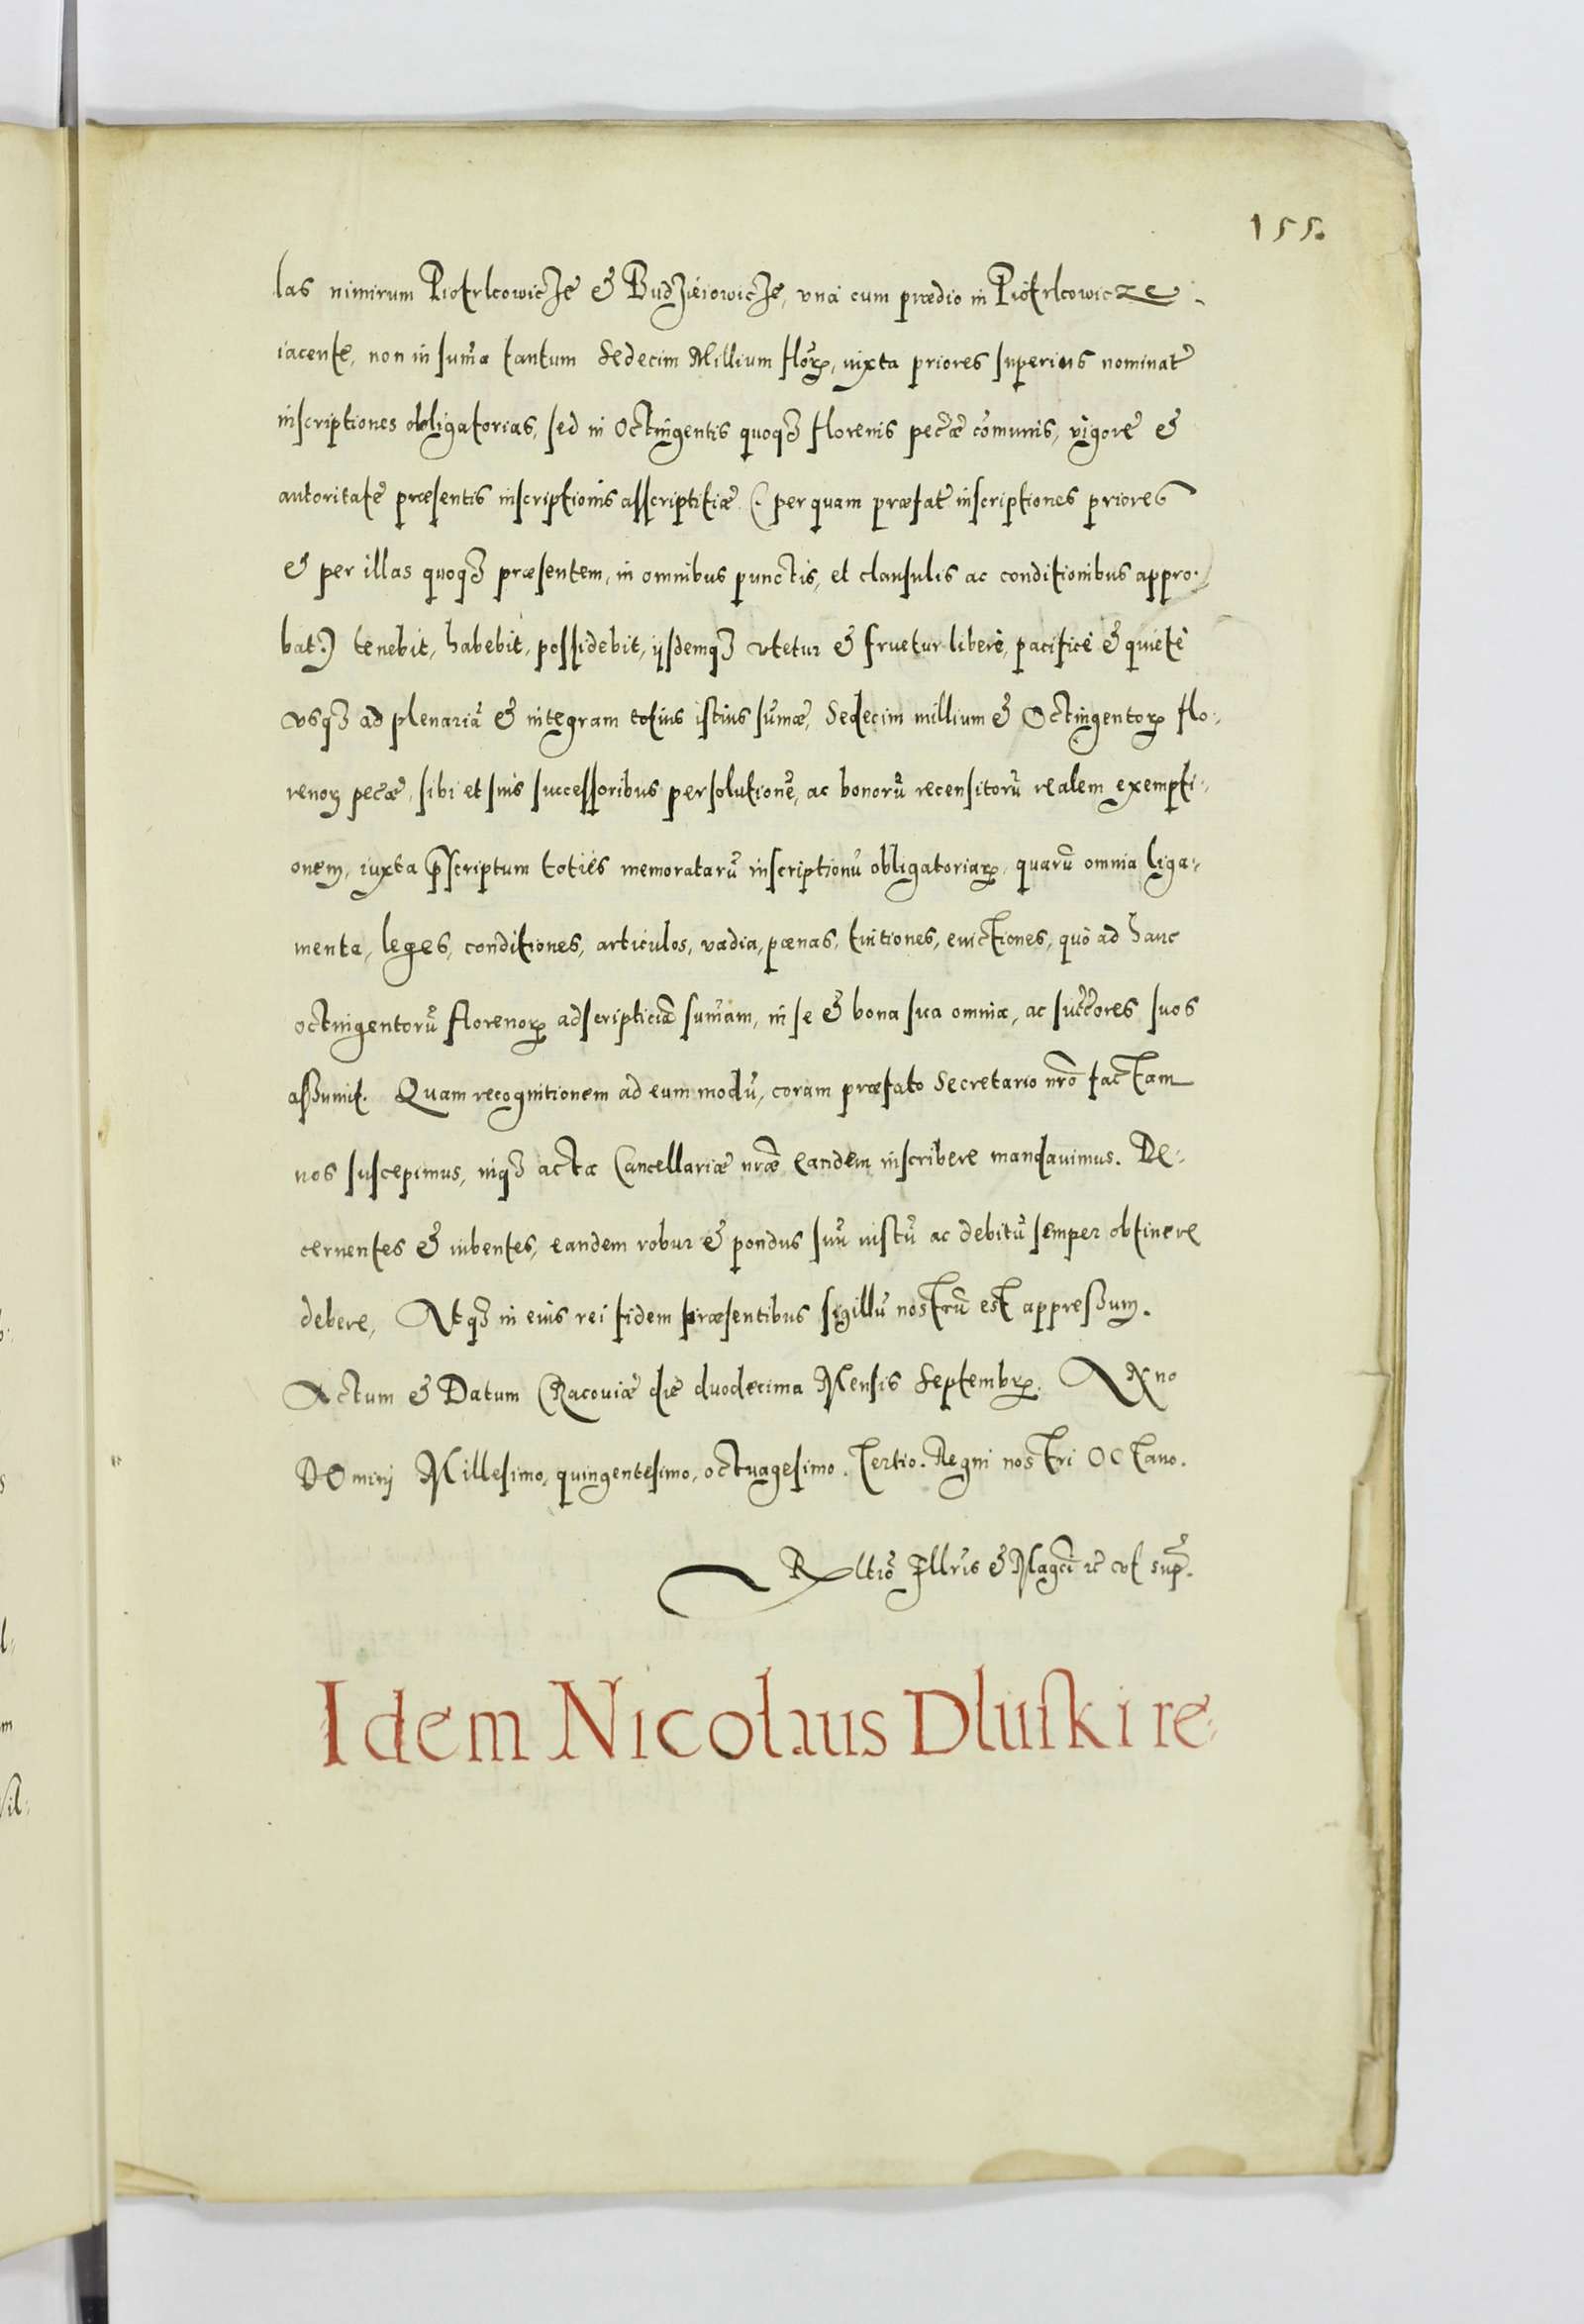 155.
las nimirum Piotrkowicze & Budzieiowicze, vná cum prædio in Piotrkowicze
iacente, non in sum̃a tantum Sedecim Millium floꝝ, iuxta priores superius nominat̃
inscriptiones obligatorias, sed in Octingentis quoqꝫ florenis pec̃æ com̃unis, vigore &
autoritate præsentis inscriptionis asscriptitiæ (: per quam præfat̃ inscriptiones priores
& per illas quoqꝫ præsentem, in omnibus punctis, et clausulis ac conditionibus appro:
bat:) tenebit, habebit, possidebit, ijsdemqꝫ vtetur & fruetur liberè, pacificè & quietè
vsqꝫ ad plenariã & integram totius istius sum̃æ, Sedecim millium & Octingentoꝝ flo:
renoꝝ pec̃æ, sibi et suis successoribus persolutionẽ, ac bonorũ recensitorũ realem exempti:
onem, iuxta p̃scriptum totiẽs memoratarũ inscriptionũ obligatoriaꝝ, quarũ omnia liga:
menta, leges, conditiones, articulos, vadia, pœnas, tuitiones, euictiones, quò ad hanc
octingentorũ florenoꝝ adscripticiã sum̃am, in se & bona sua omnia, ac succ̃ores suos
assumit. Quam recognitionem ad eum modũ, coram præfato Secretario nr̃o factam
nos suscepimus, inqꝫ acta Cancellariæ nr̃æ eandem inscribere mandauimus. De:
cernentes & iubentes, eandem robur & pondus suũ iustũ ac debitũ semper obtinere
debere, Atqꝫ in eius rei fidem præsentibus sigillũ nostrũ est appressum.
Actum & Datum Cracouiæ die duodecima Mensis Septembꝝ. Anno
Domini Millesimo, quingentesimo, octuagesimo. Tertio. Regni nostri Octauo.
Rltiõ Illr̃is & Magc̃i ꝛc vt sup̃.
Idem Nicolaus Dluski re: